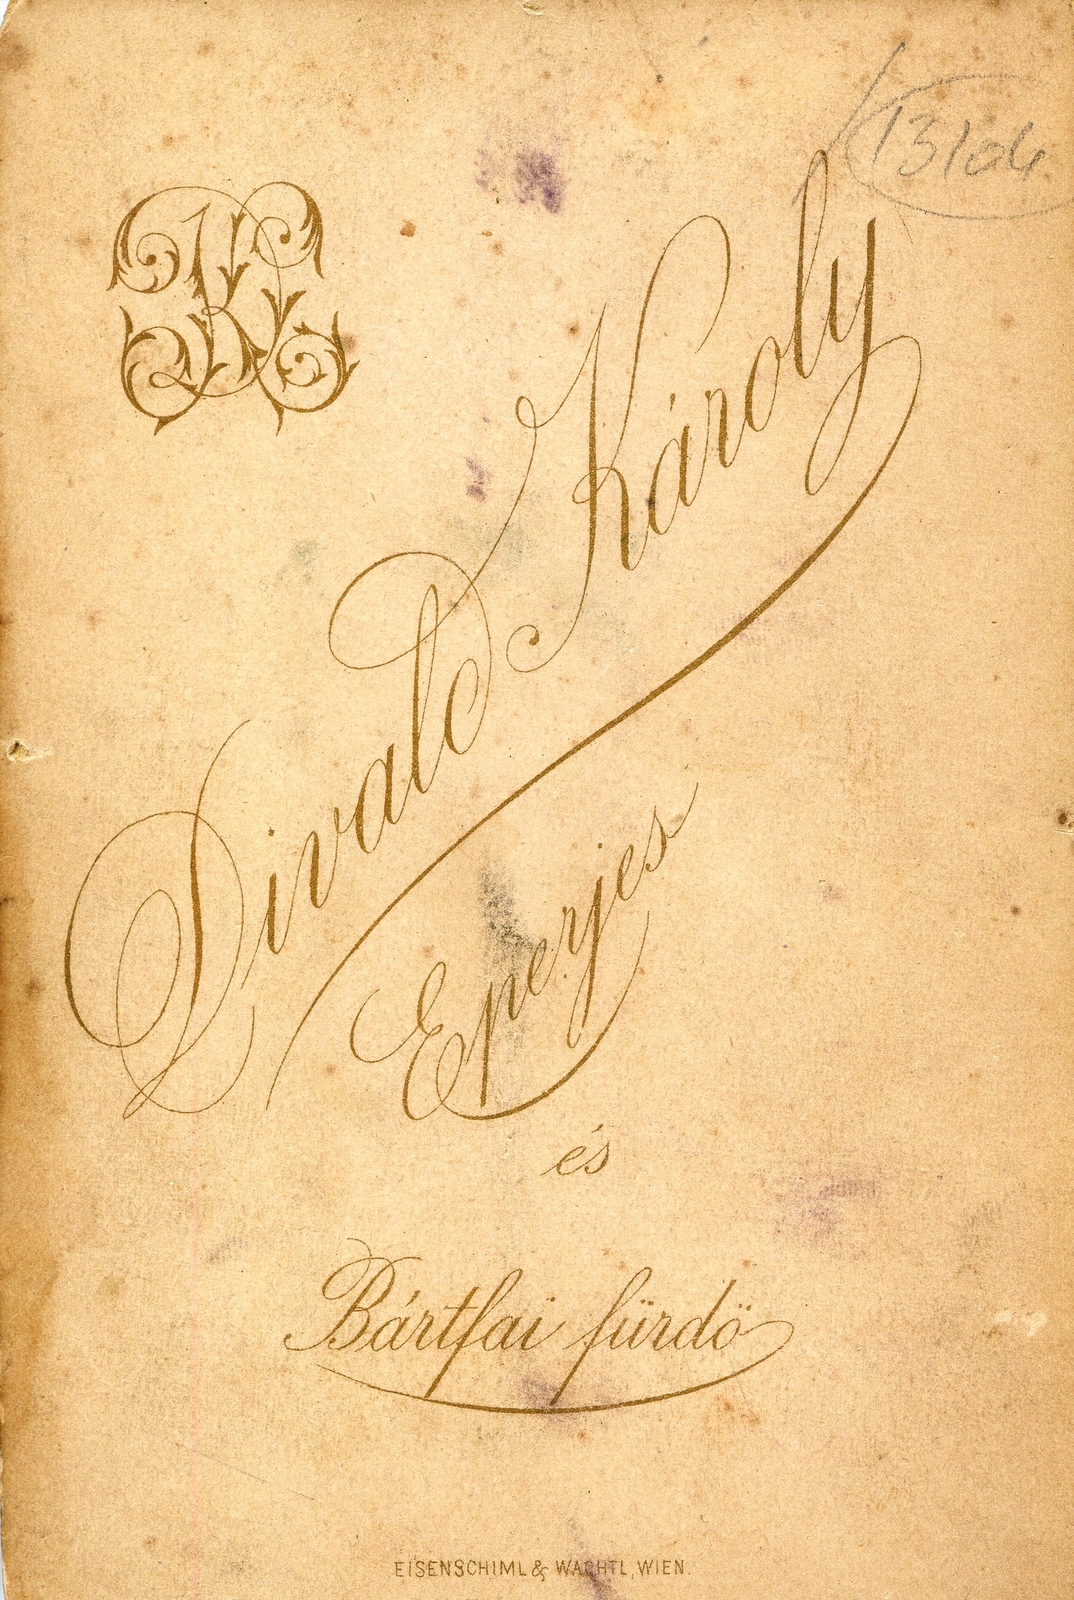 13/04
DK
Divald Károly
Eperjes
és
Bártfai fürdö
EISENSCHIML & WACHTL, WIEN.